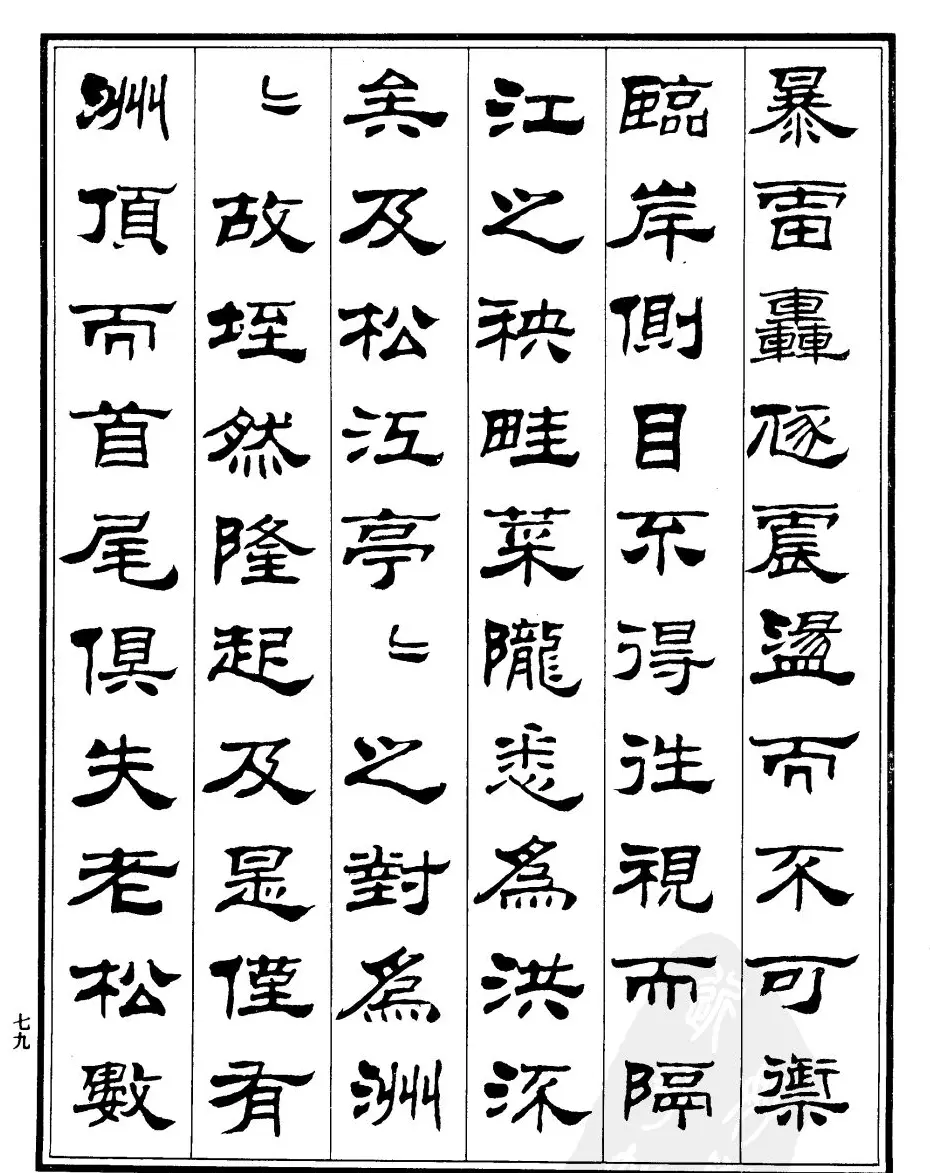 暴雷轟豗震盪而不可禦
臨岸側目不得往視而隔
江之秧畦菜隴悉爲洪流
矣及松江亭〻之對爲洲
〻故垤然隆起及是僅有
洲頂而首尾俱失老松數
七九